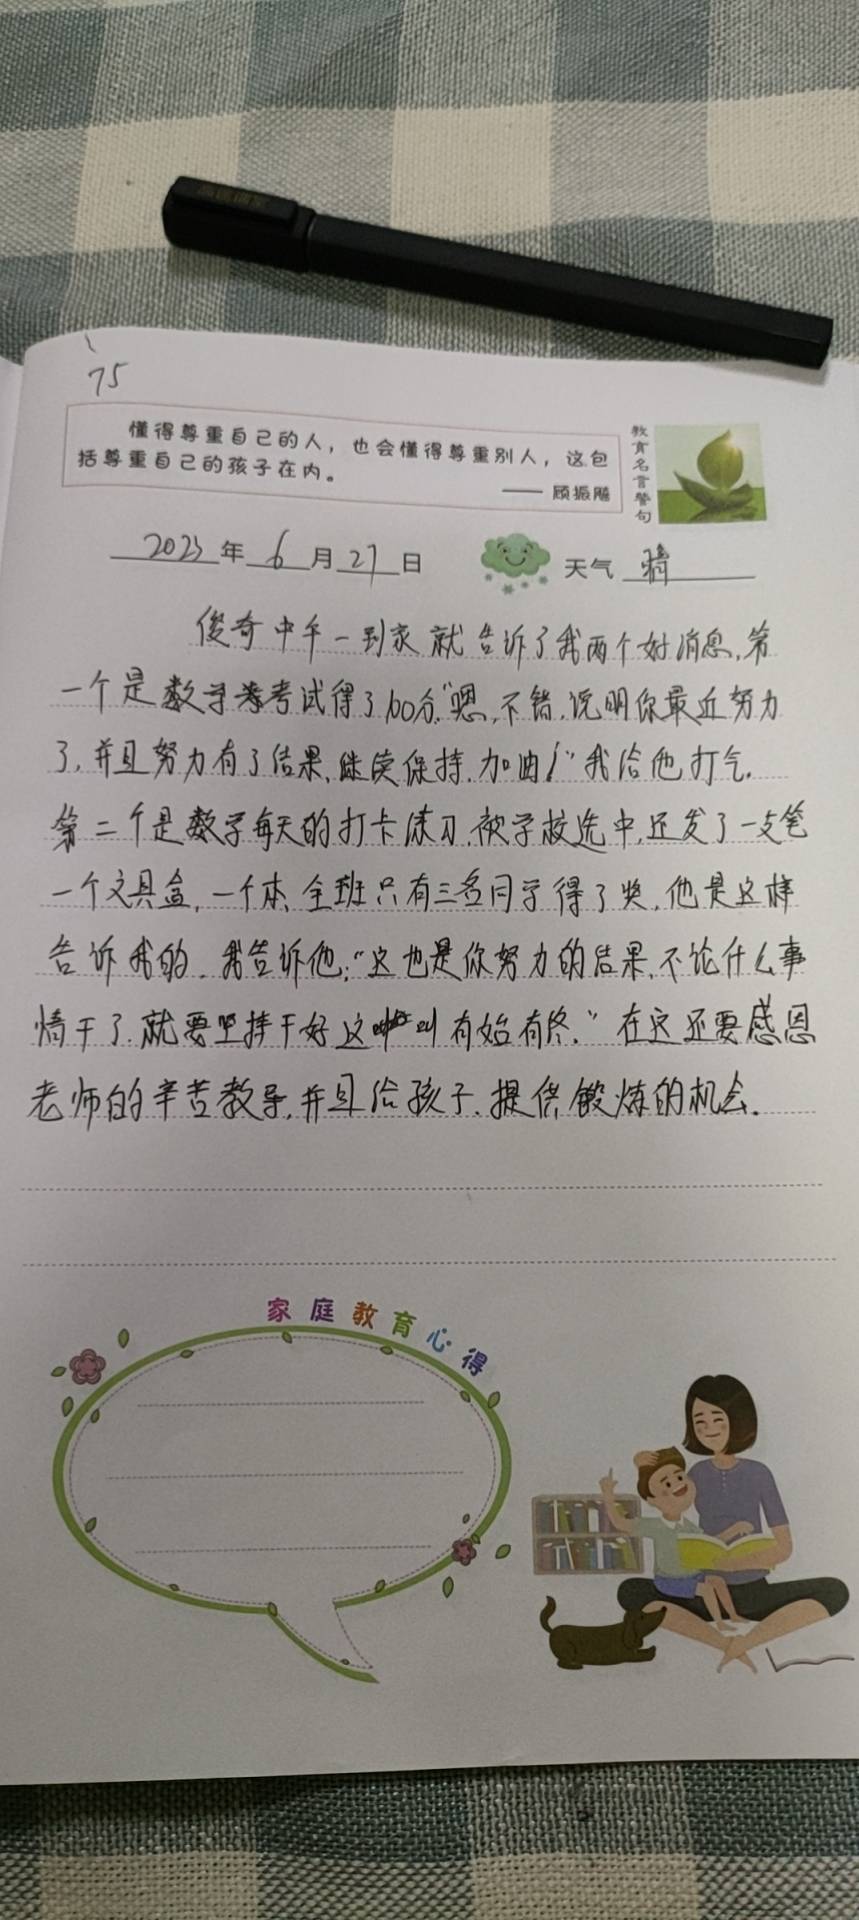 75
懂得尊重自己的人，也会懂得尊重别人，这包
括尊重自己的孩子在内。
—— 顾振飚
教育名言警句
2023年6月27日
天气 晴
俊奇中午一到家就告诉了我两个好消息,第
一个是数学考试得了100分,"嗯,不错,说明你最近努力
了,并且努力有了结果,继续保持,加油!"我给他打气.
第二个是数学每天的打卡练习,被学校选中,还发了一支笔
一个文具盒,一个本,全班只有三名同学得了奖,他是这样
告诉我的,我告诉他:"这也是你努力的结果,不论什么事
情干了,就要坚持干好这叫有始有终."在这还要感恩
老师的辛苦教导,并且给孩子,提供锻炼的机会.
家庭教育心得